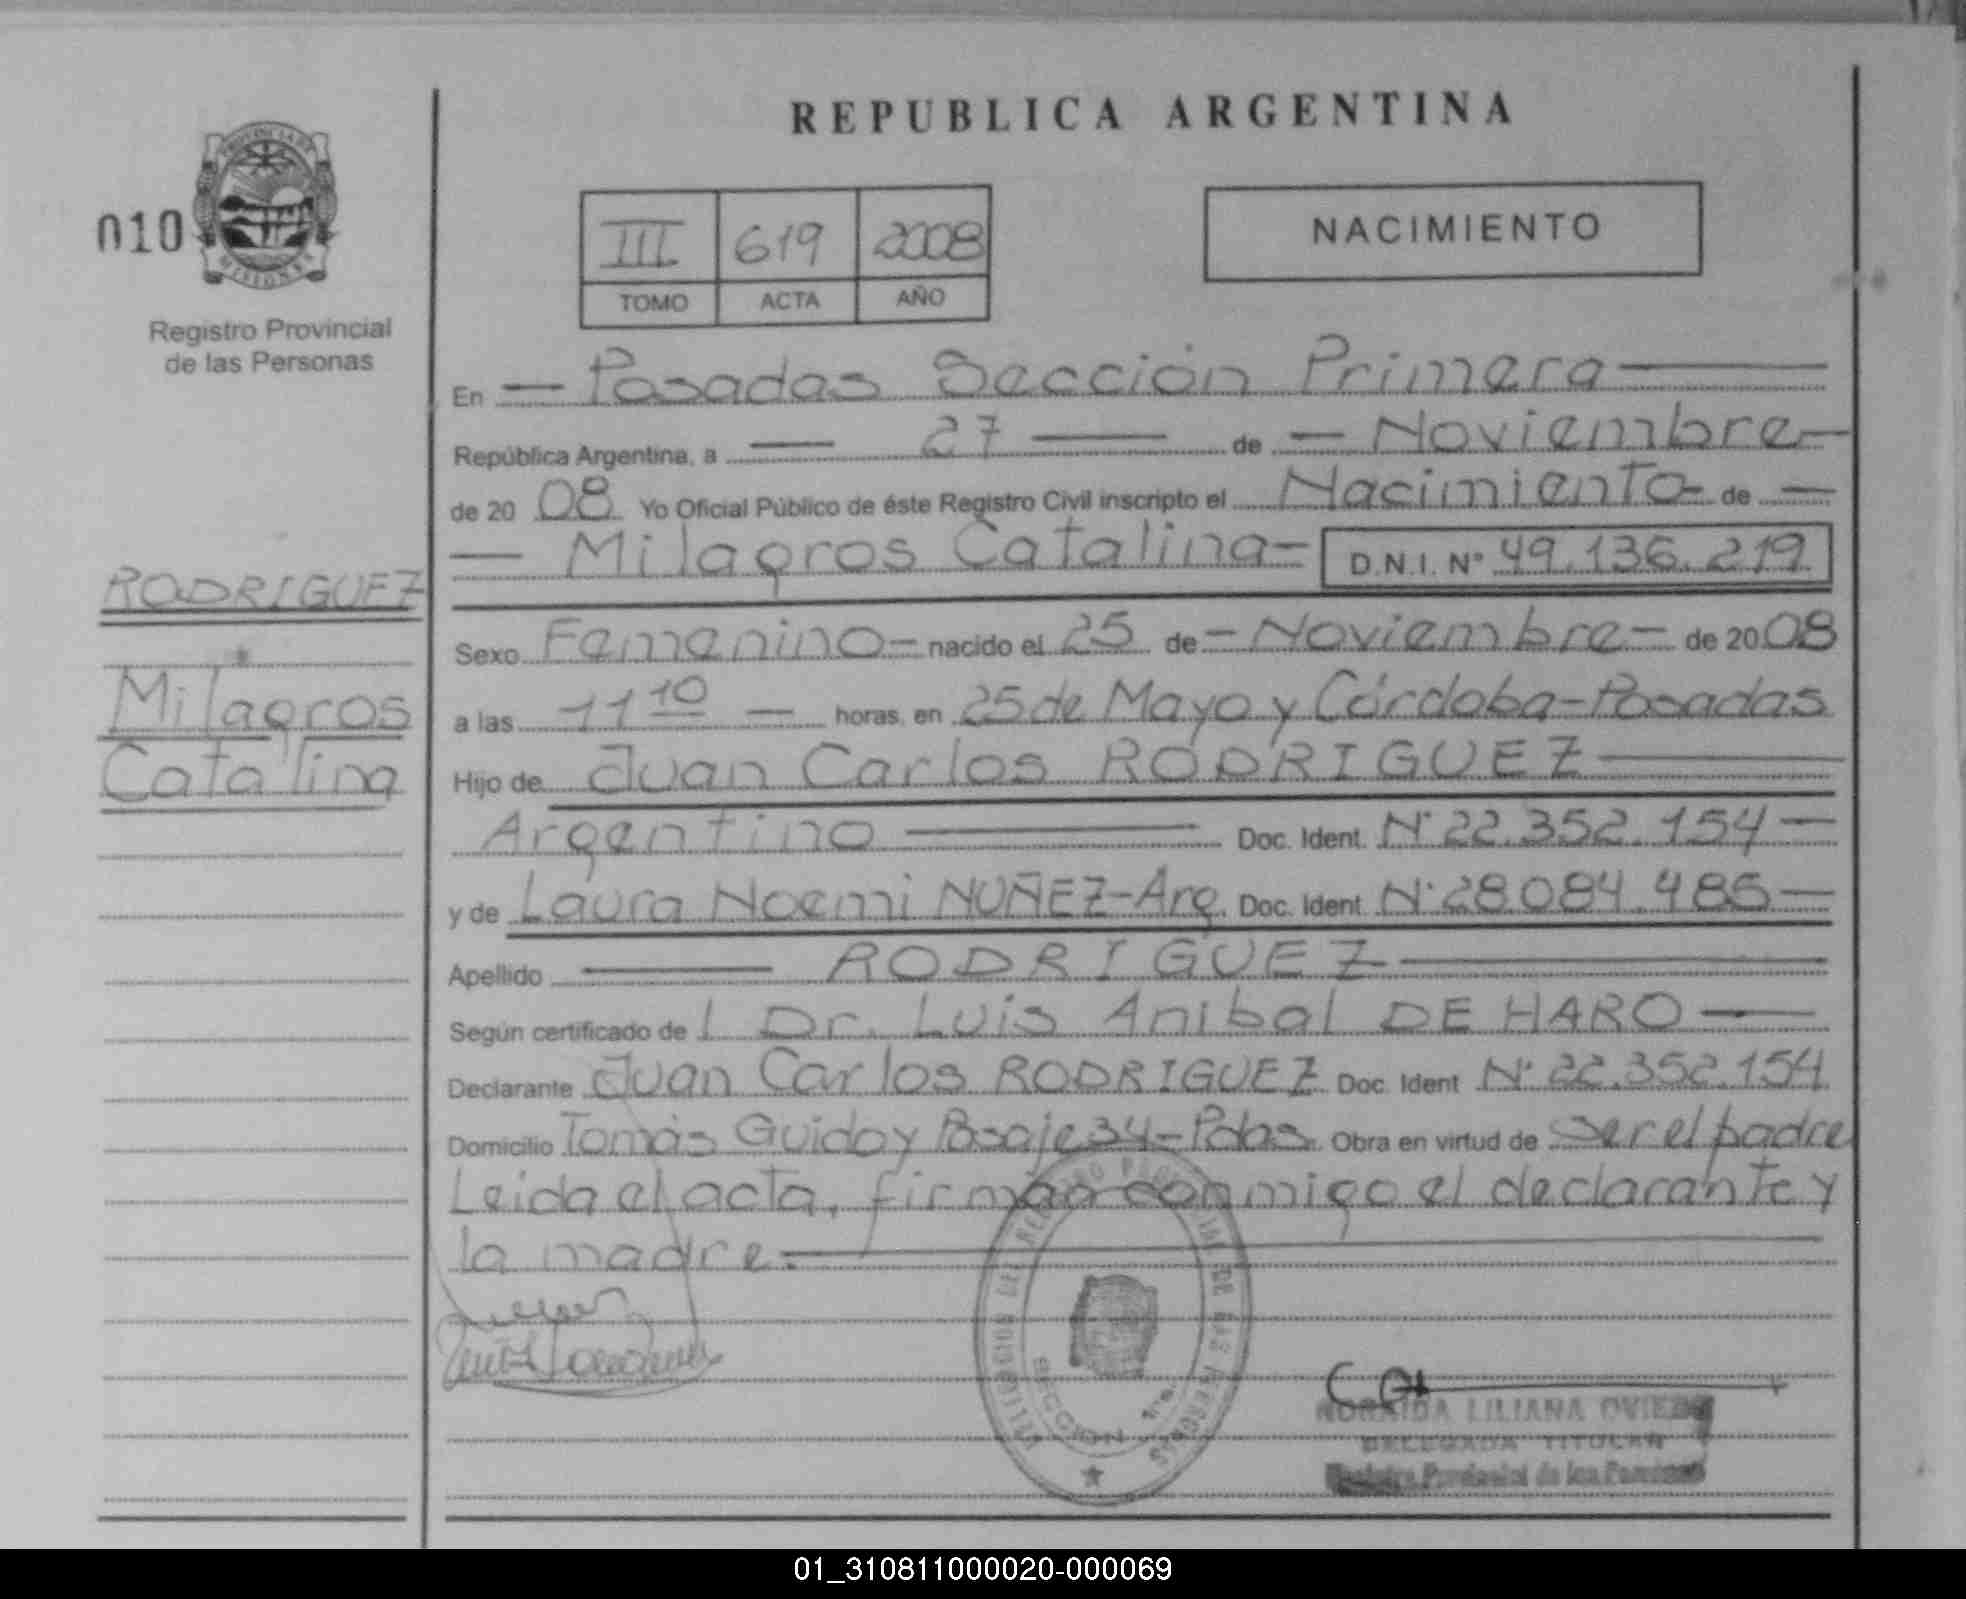 REPUBLICA ARGENTINA
PROVINCIA DE
MISIONES
010
Registro Provincial
de las Personas
III 619 2008
TOMO ACTA AÑO
NACIMIENTO
En — Posadas Sección Primera —
República Argentina, a — 27 — de — Noviembre —
de 20 08 Yo Oficial Público de éste Registro Civil inscripto el Nacimiento - de —
— Milagros Catalina - D.N.I. N° 49.136.219
RODRIGUEZ
Milagros
Catalina
Sexo Femenino - nacido el 25 de - Noviembre - de 20 08
a las 11 10 — horas, en 25 de Mayo y Córdoba - Posadas
Hijo de Juan Carlos RODRIGUEZ —
Argentino — Doc. Ident. N° 22.352.154 —
y de Laura Noemi NUÑEZ - Arg. Doc. Ident. N° 28.084.485 —
Apellido — RODRIGUEZ —
Según certificado de l Dr. Luis Anibal DE HARO —
Declarante Juan Carlos RODRIGUEZ Doc. Ident N° 22.352.154
Domicilio Tomás Guido y Pasaje 34 - Pdas. Obra en virtud de ser el padre
Leida el acta, firman conmigo el declarante y
la madre. —
DELEGACION DEL REGISTRO PROVINCIAL DE LAS PERSONAS
SECCION 1ra.
LILIANA OVIEDO
DELEGADA TITULAR
Registro Provincial de las Personas
01_310811000020-000069